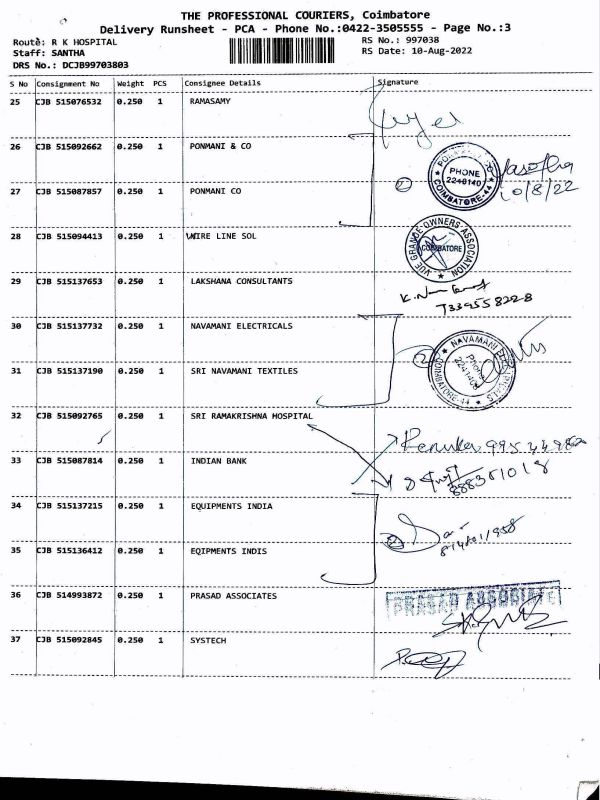 THE PROFESSIONAL COURIERS, Coimbatore
Delivery Runsheet - PCA - Phone No.:0422-3505555 - Page No.:3
Route: R K HOSPITAL RS No.: 997038
Staff: SANTHA RS Date: 10-Aug-2022
DRS No.: DCJB99703803
S No Consignment No Weight PCS Consignee Details Signature
25 CJB 515076532 0.250 1 RAMASAMY
26 CJB 515092662 0.250 1 PONMANI & CO
PHONE
2240140
COIMBATORE-44
10/8/22
27 CJB 515087857 0.250 1 PONMANI CO
28 CJB 515094413 0.250 1 WIRE LINE SOL
VUE GRANDE OWNERS ASSOCIATION
COIMBATORE
29 CJB 515137653 0.250 1 LAKSHANA CONSULTANTS
7339558228
30 CJB 515137732 0.250 1 NAVAMANI ELECTRICALS
31 CJB 515137190 0.250 1 SRI NAVAMANI TEXTILES
NAVAMANI
Phone
COIMBATORE-44
32 CJB 515092765 0.250 1 SRI RAMAKRISHNA HOSPITAL
Renuka
33 CJB 515087814 0.250 1 INDIAN BANK
34 CJB 515137215 0.250 1 EQUIPMENTS INDIA
35 CJB 515136412 0.250 1 EQIPMENTS INDIS
36 CJB 514993872 0.250 1 PRASAD ASSOCIATES
PRASAD ASSOCIATE
37 CJB 515092845 0.250 1 SYSTECH